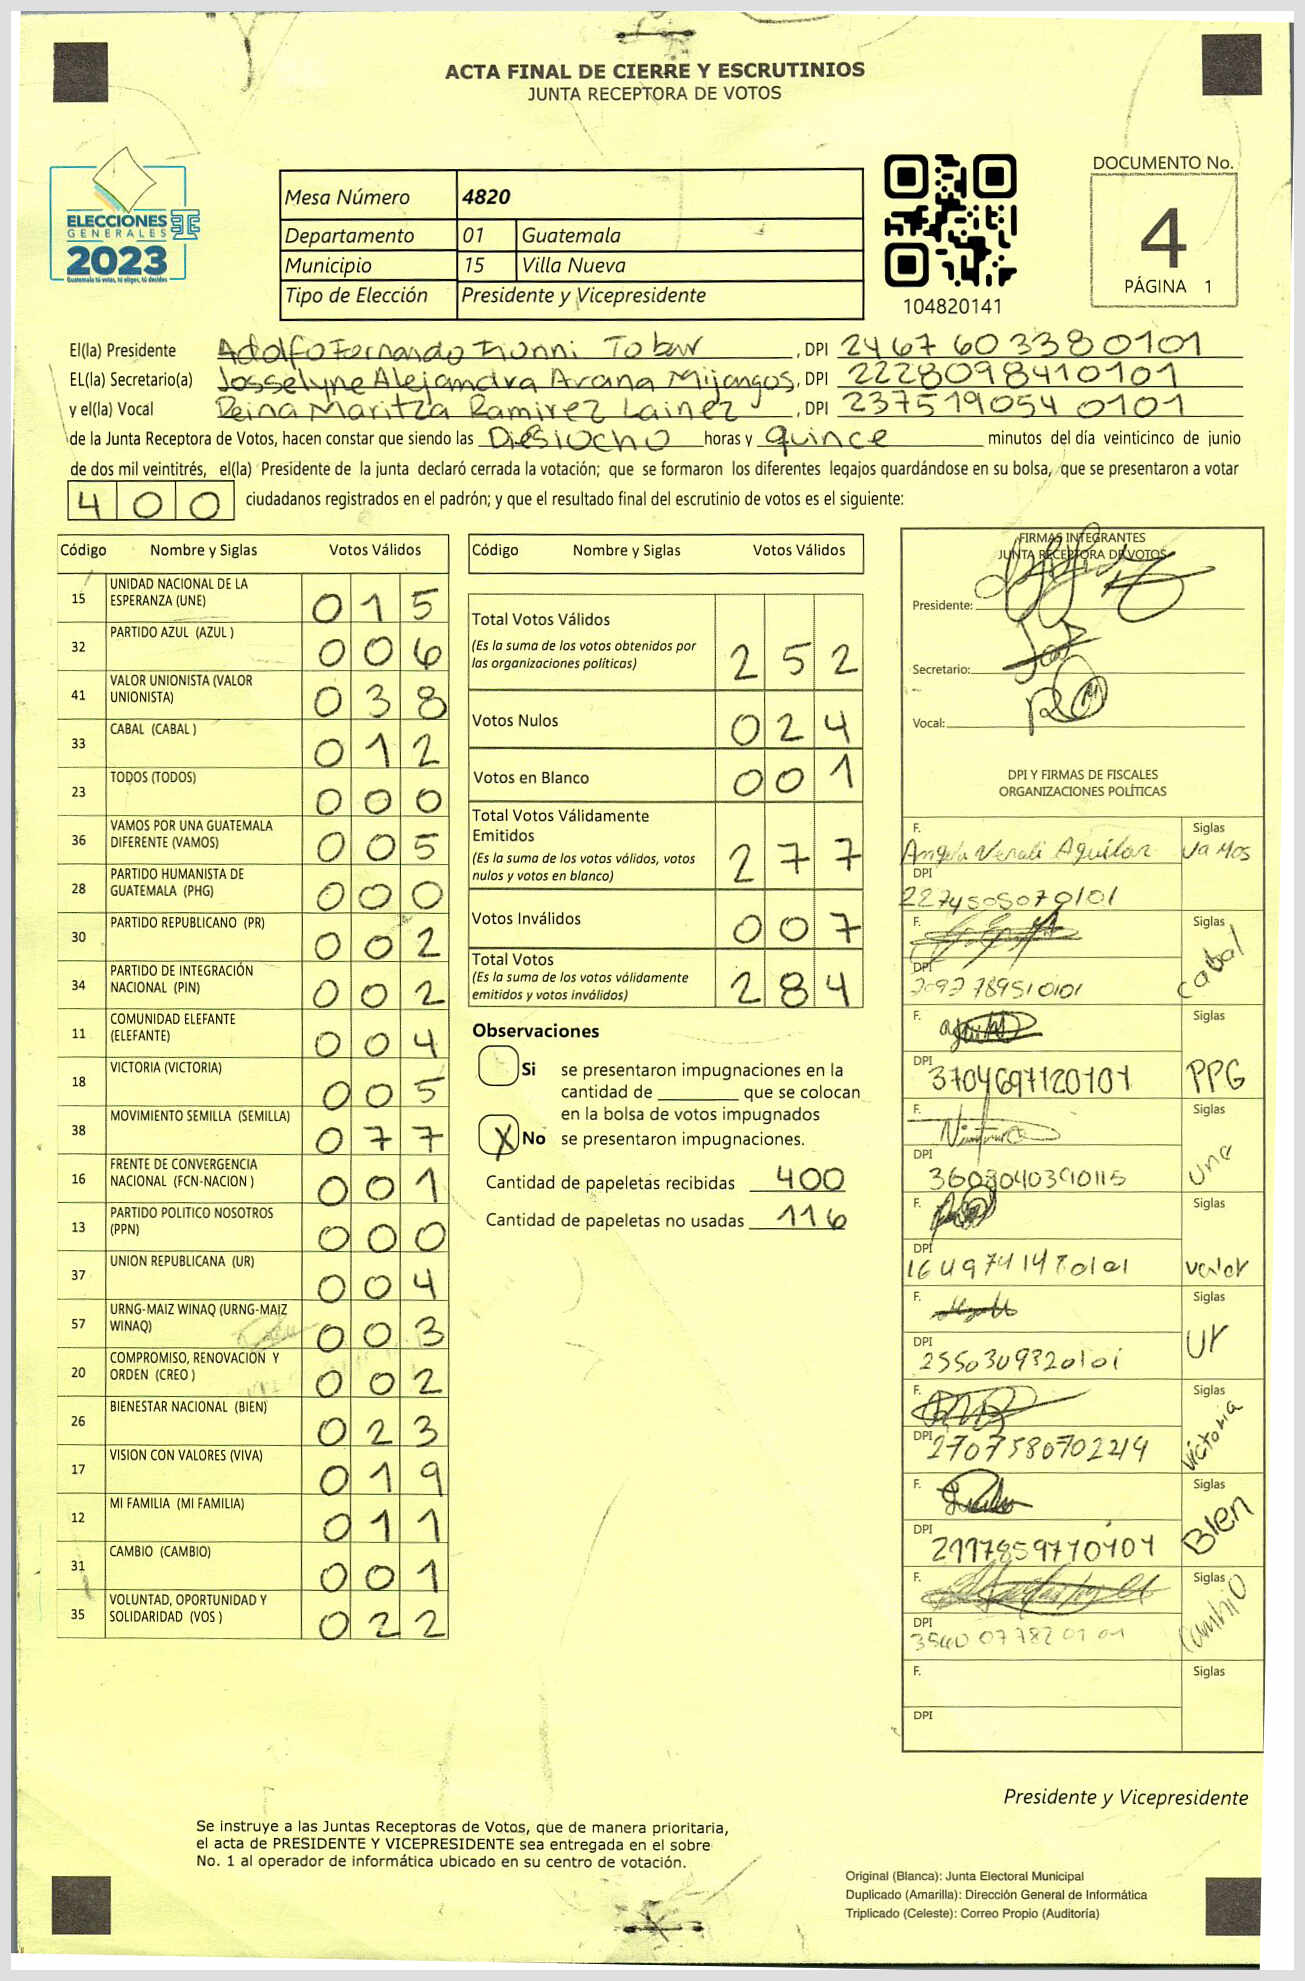 ACTA FINAL DE CIERRE Y ESCRUTINIOS
JUNTA RECEPTORA DE VOTOS
ELECCIONES
GENERALES
2023
Guatemala tú votas, tú eliges, tú decides
Mesa Número 4820
Departamento 01 Guatemala
Municipio 15 Villa Nueva
Tipo de Elección Presidente y Vicepresidente
104820141
DOCUMENTO No.
4
PÁGINA 1
El(la) Presidente Adolfo Fernando Tobar, DPI 2467603380101
EL(la) Secretario(a) Josselyne Alejandra Arana Mijangos, DPI 2228098410101
y el(la) Vocal Reina Maritza Ramirez Lainez, DPI 2375190540101
de la Junta Receptora de Votos, hacen constar que siendo las Diesiocho horas y quince minutos del día veinticinco de junio
de dos mil veintitrés, el(la) Presidente de la junta declaró cerrada la votación; que se formaron los diferentes legajos guardándose en su bolsa, que se presentaron a votar
400 ciudadanos registrados en el padrón; y que el resultado final del escrutinio de votos es el siguiente:
Código Nombre y Siglas Votos Válidos
15 UNIDAD NACIONAL DE LA ESPERANZA (UNE) 015
32 PARTIDO AZUL (AZUL ) 006
41 VALOR UNIONISTA (VALOR UNIONISTA) 038
33 CABAL (CABAL ) 012
23 TODOS (TODOS) 000
36 VAMOS POR UNA GUATEMALA DIFERENTE (VAMOS) 005
28 PARTIDO HUMANISTA DE GUATEMALA (PHG) 000
30 PARTIDO REPUBLICANO (PR) 002
34 PARTIDO DE INTEGRACIÓN NACIONAL (PIN) 002
11 COMUNIDAD ELEFANTE (ELEFANTE) 004
18 VICTORIA (VICTORIA) 005
38 MOVIMIENTO SEMILLA (SEMILLA) 077
16 FRENTE DE CONVERGENCIA NACIONAL (FCN-NACION ) 001
13 PARTIDO POLITICO NOSOTROS (PPN) 000
37 UNION REPUBLICANA (UR) 004
57 URNG-MAIZ WINAQ (URNG-MAIZ WINAQ) 003
20 COMPROMISO, RENOVACION Y ORDEN (CREO ) 002
26 BIENESTAR NACIONAL (BIEN) 023
17 VISION CON VALORES (VIVA) 019
12 MI FAMILIA (MI FAMILIA) 011
31 CAMBIO (CAMBIO) 001
35 VOLUNTAD, OPORTUNIDAD Y SOLIDARIDAD (VOS ) 022
Código Nombre y Siglas Votos Válidos
Total Votos Válidos 252
(Es la suma de los votos obtenidos por
las organizaciones políticas)
Votos Nulos 024
Votos en Blanco 001
Total Votos Válidamente
Emitidos 277
(Es la suma de los votos válidos, votos
nulos y votos en blanco)
Votos Inválidos 007
Total Votos 284
(Es la suma de los votos válidamente
emitidos y votos inválidos)
Observaciones
Si se presentaron impugnaciones en la
cantidad de ________ que se colocan
en la bolsa de votos impugnados
X No se presentaron impugnaciones.
Cantidad de papeletas recibidas 400
Cantidad de papeletas no usadas 116
FIRMAS INTEGRANTES
JUNTA RECEPTORA DE VOTOS
Presidente:
Secretario:
Vocal:
DPI Y FIRMAS DE FISCALES
ORGANIZACIONES POLÍTICAS
F. Angela Aguilar Siglas Vamos
DPI 2274505070101
F. Siglas Cabal
DPI
F. Siglas PPG
DPI 3704697120101
F. Siglas Une
DPI
F. Siglas Valor
DPI 1649741470101
F. Siglas Ur
DPI 2550309320101
F. Siglas Victoria
DPI 2707580702219
F. Siglas Bien
DPI 2117859770101
F. Siglas Cambio
DPI 3540077820101
F. Siglas
DPI
Presidente y Vicepresidente
Se instruye a las Juntas Receptoras de Votos, que de manera prioritaria,
el acta de PRESIDENTE Y VICEPRESIDENTE sea entregada en el sobre
No. 1 al operador de informática ubicado en su centro de votación.
Original (Blanca): Junta Electoral Municipal
Duplicado (Amarilla): Dirección General de Informática
Triplicado (Celeste): Correo Propio (Auditoría)